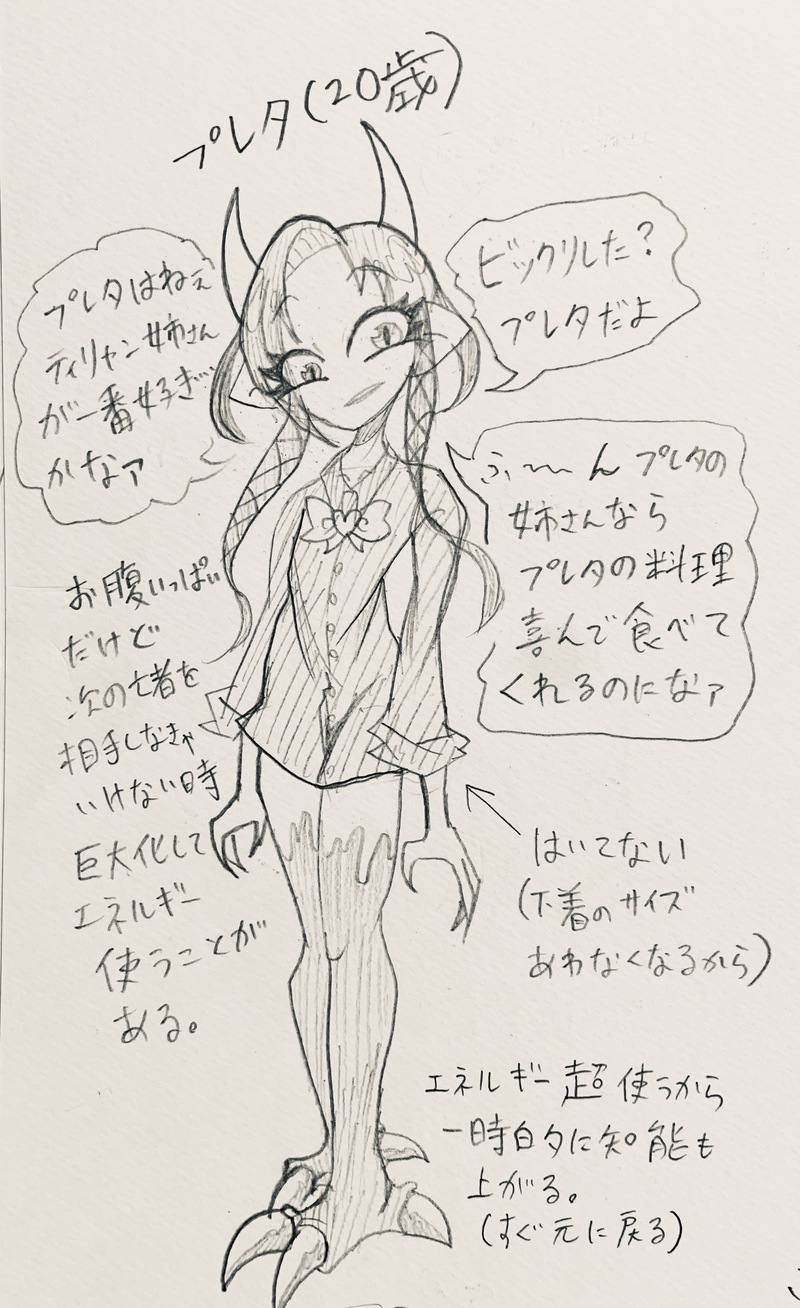 プレタ(20歳)
ビックリした?
プレタだよ
プレタはねぇ
ティリャン姉さん
が一番好き…
かなァ
ふ〜〜ん プレタの
姉さんなら
プレタの料理
喜んで食べて
くれるのになァ
お腹いっぱい
だけど
次の亡者を
相手しなきゃ
いけない時
巨大化して
エネルギー
使うことが
ある。
はいてない
(下着のサイズ
あわなくなるから)
エネルギー超使うから
一時的に知能も
上がる。
(すぐ元に戻る)